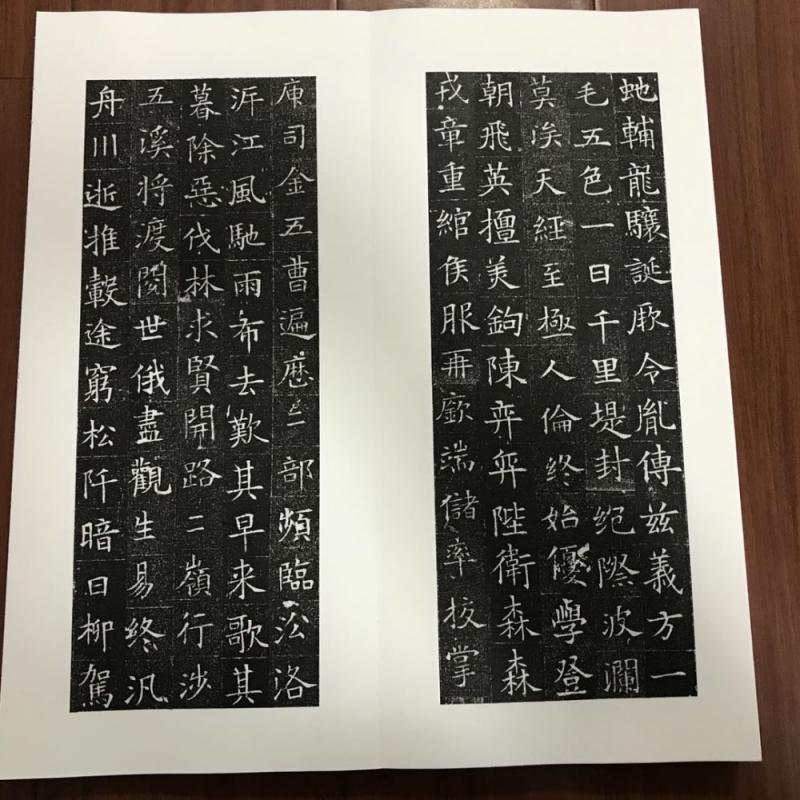 虵輔龍驤誕厥令胤傳茲義方一
毛五色一日千里堤封絕際波瀾
莫涘天經至極人倫終始優學登
朝飛英擅美鉤陳弈弈陛衛森森
戎章重綰侯服再廞端儲率校掌
庫司金五曹遍歷三部頻臨㳂洛
泝江風馳雨布去歎其早来歌其
暮除惡伐林求賢開路二嶺行涉
五溪將渡閱世俄盡觀生易終汎
舟川逝推轂途窮松阡暗日柳駕